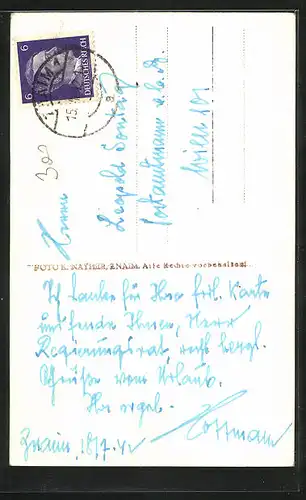 DEUTSCHES REICH
6 6
300
Herrn
Leopold Sonntag
Postamtmann a.D.
Wien 101
FOTO E. MATHEIR, ZNAIM. Alle Rechte vorbehalten!
Ich danke für Ihre frdl. Karte
und sende Ihnen, Herr
Regierungsrat, recht herzl.
Grüße vom Urlaub.
Ihr ergeb.
Znaim, 18/7.42 Hoffmann